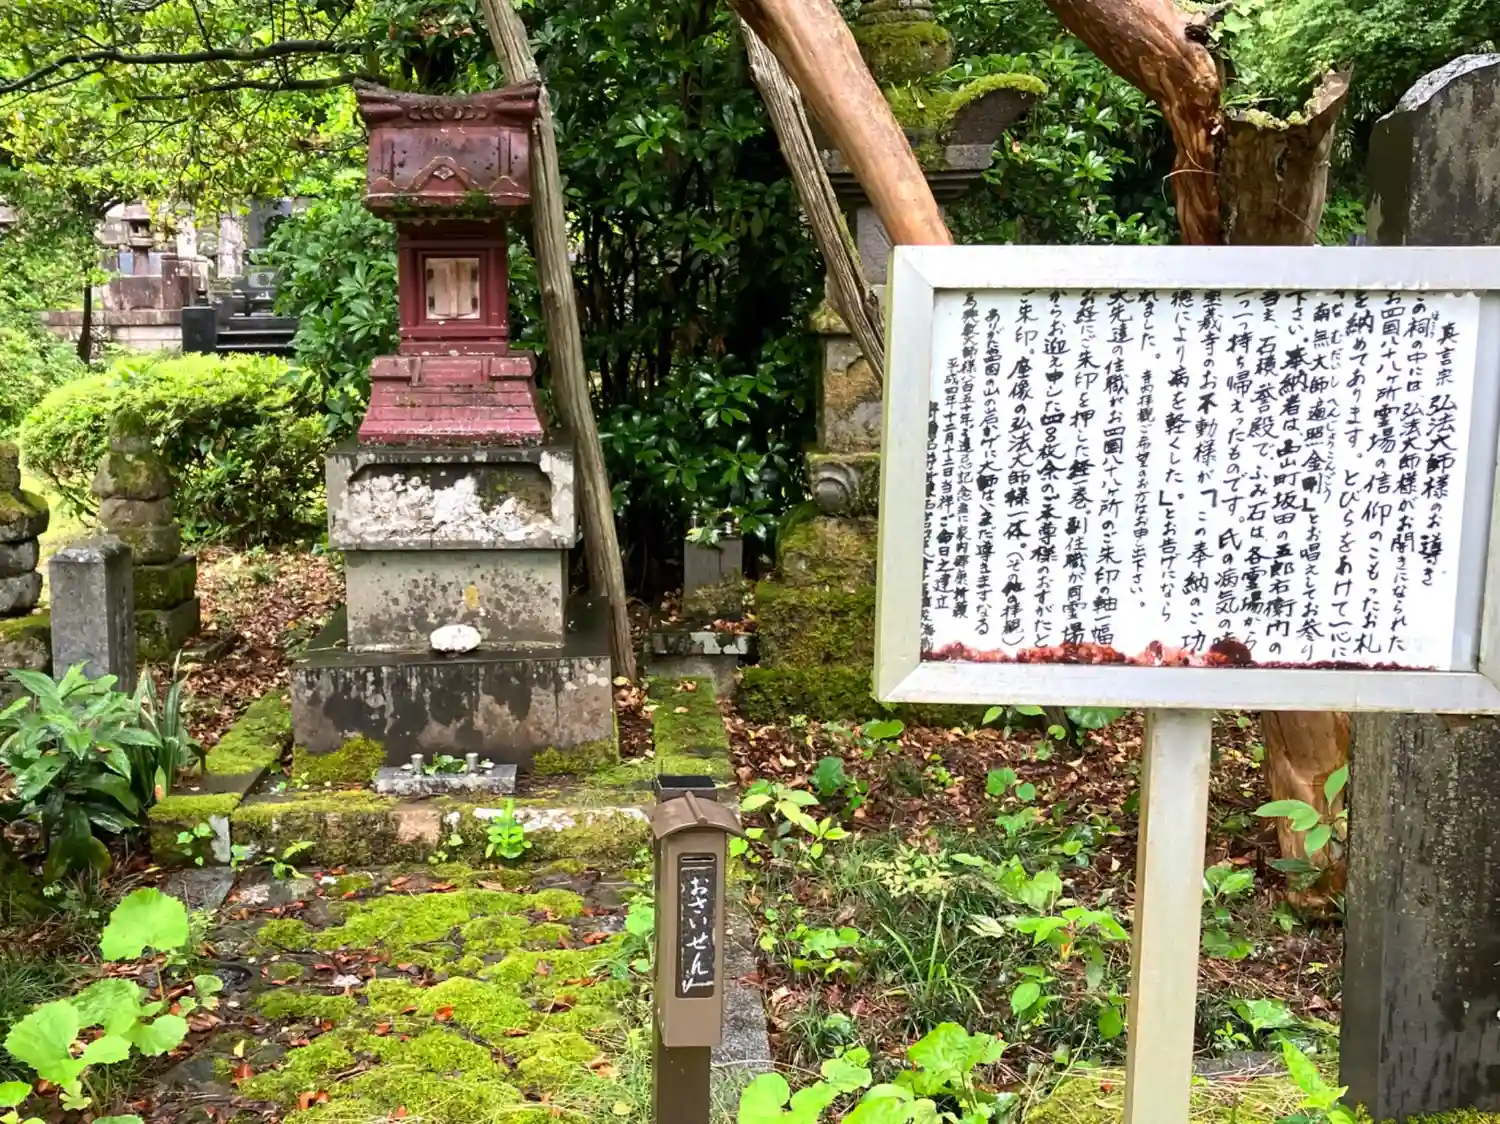 真言宗、弘法大師様のお導き
この祠の中には、弘法大師様がお開きになられた
お四国八十八ヶ所霊場の信仰のこもったお札
を納めてあります。とびらをあけて一心に
「南無大師遍照金剛」とお唱えしてお参り
なむだいしへんじょうこんごう
下さい。奉納者は
当主、石積誉殿で、ふみ石は、各霊場から
一つ一つ持ち帰えったものです。氏の病気の時
のお不動様が「この奉納のご功
徳により病を軽くした。」とお告げになら
れました。寺内拝観ご希望のお方はお申し出下さい。
大先達の住職がお四国八十八ヶ所のご朱印の軸一幅
お経にご朱印を押した経一巻、副住職が同霊場
からお迎え申した四百枚余のご本尊様のおすがたと
ご朱印。座像の弘法大師様一体。(その他拝観)
ありがたや四国の山の岩かげに大師はいまだ導きますなる
平成四年十二月十二日当祥ご命日之建立
おさいせん